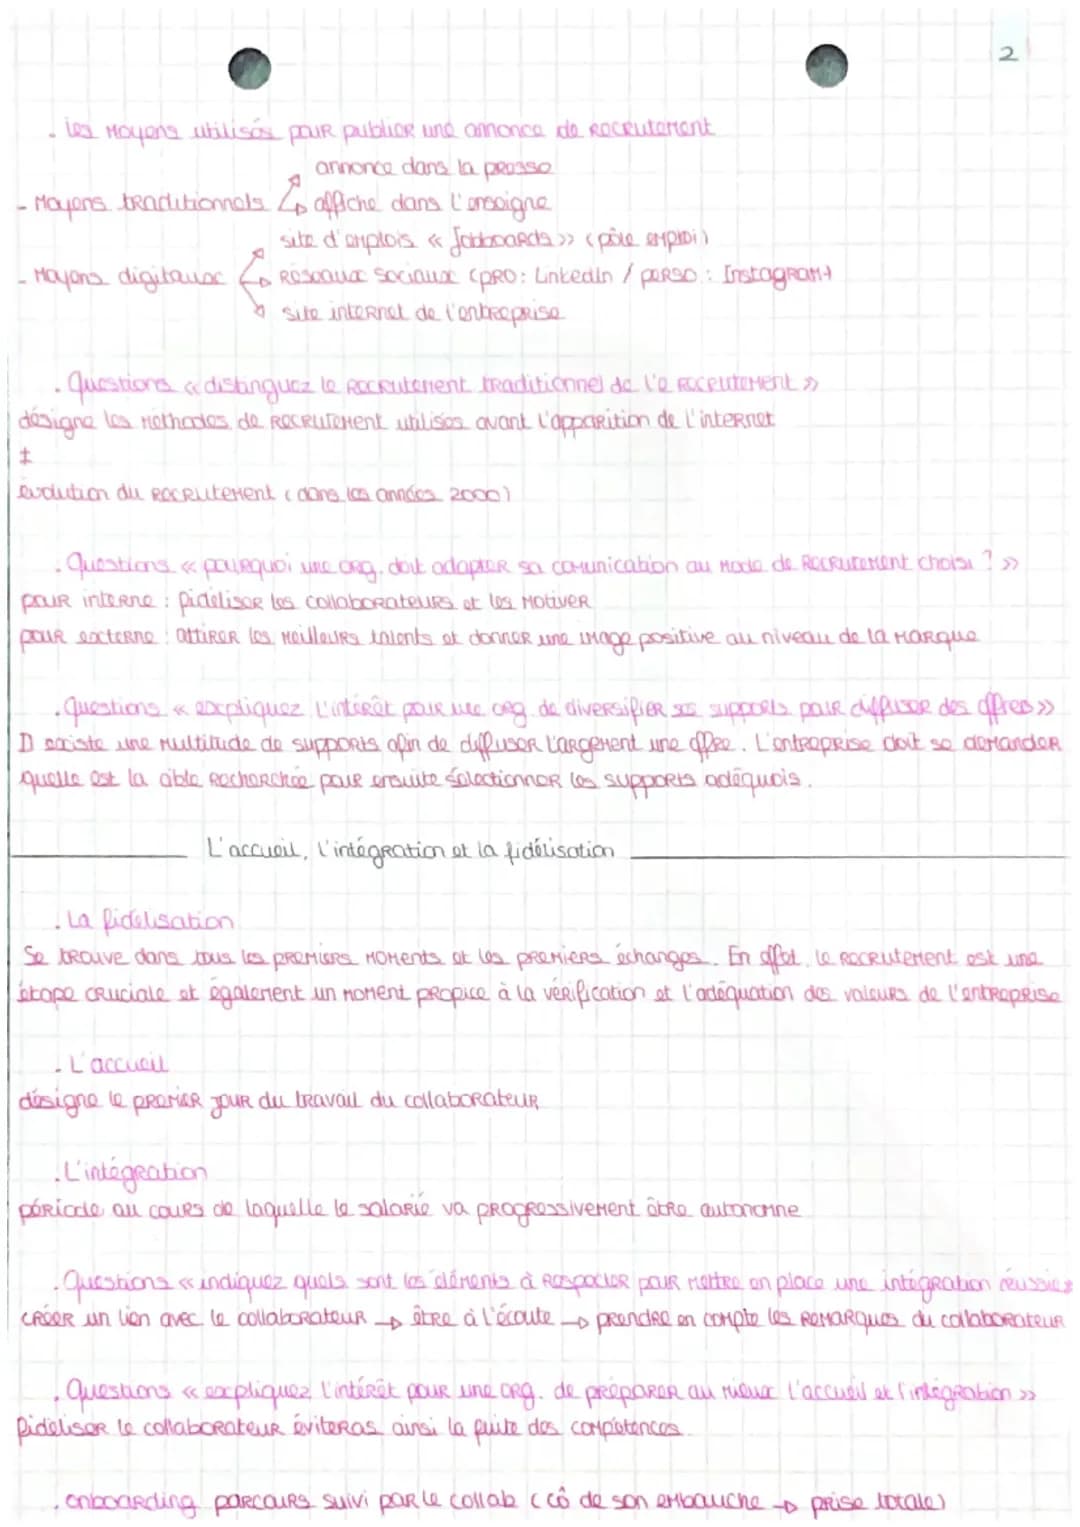 2
. les moyens utilisés pour publier une annonce de recrutement
annonce dans la presse
- Moyens traditionnels → affiche dans l'enseigne
site d'emplois « Jobboards » (pôle emploi)
- Moyens digitaux → Réseaux sociaux (pro : LinkedIn / perso : Instagram)
site internet de l'entreprise
. Questions « distinguez le recrutement traditionnel de l'e recrutement »
désigne les méthodes de recrutement utilisés avant l'apparition de l'internet
≠
évolution du recrutement (dans les années 2000)
. Questions « pourquoi une org. doit adapter sa comunication au mode de recrutement choisi ? »
pour interne : fidéliser les collaborateurs et les motiver
pour externe : attirer les meilleurs talents et donner une image positive au niveau de la marque
. Questions « expliquez l'intérêt pour une org de diversifier ses supports pour diffuser des offres »
Il existe une multitude de supports afin de diffuser largement une offre. L'entreprise doit se demander
quelle est la cible recherchée pour ensuite sélectionner les supports adéquois.
L'accueil, l'intégration et la fidélisation
. La fidélisation
Se trouve dans tous les premiers moments et les premiers échanges. En effet, le recrutement est une
étape cruciale et également un moment propice à la vérification et l'adéquation des valeurs de l'entreprise
. L'accueil
désigne le premier jour du travail du collaborateur
. L'intégration
période au cours de laquelle le salarié va progressivement être autonome
. Questions « indiquez quels sont les éléments à respecter pour mettre en place une intégration réussies
créer un lien avec le collaborateur → être à l'écoute → prendre en compte les remarques du collaborateur
. Questions « expliquez l'intérêt pour une org. de préparer au mieux l'accueil et l'intégration »
Fidéliser le collaborateur éviteras ainsi la fuite des compétences
. onboarding parcours suivi par le collab (cô de son embauche → prise totale)